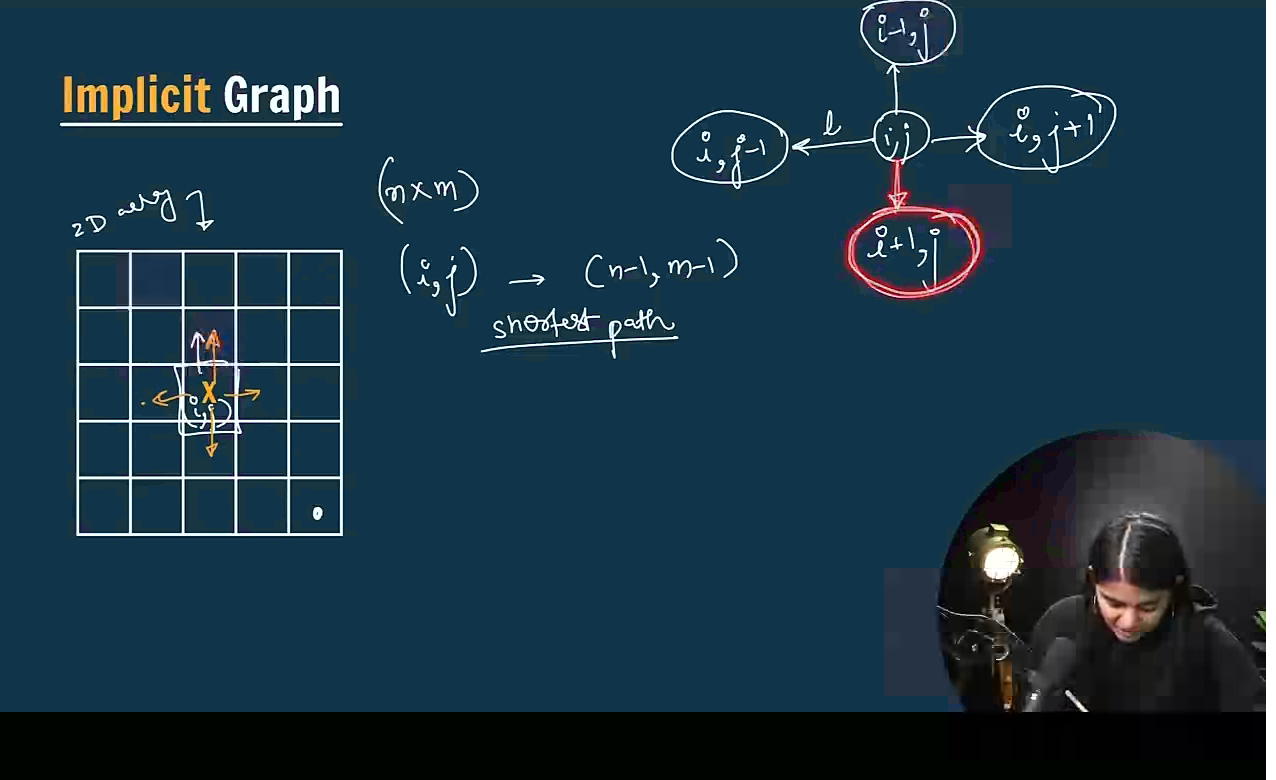 Implicit Graph
2D array
(n×m)
(i,j) → (n-1, m-1)
shortest path
X
(i,j)
i-1,j
i,j-1
l
i,j
i,j+1
i+1,j